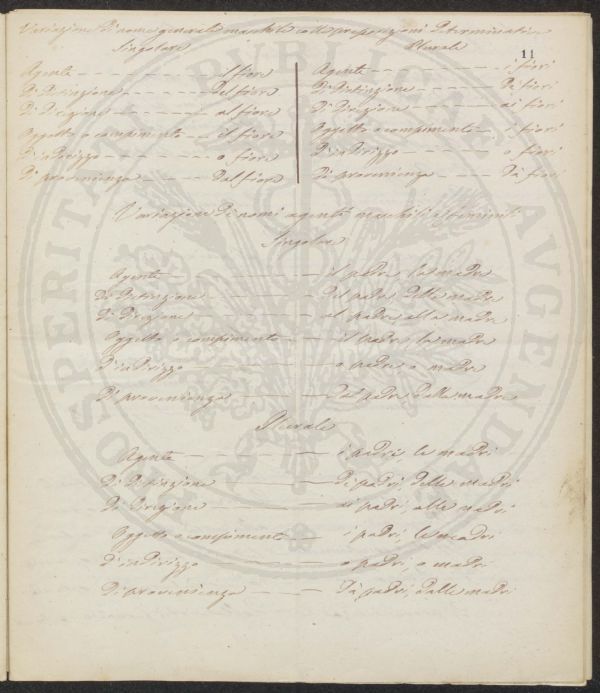 Variazione di nome generale maschile colle preposizioni determinative
Singolare
Plurale
11
Agente il fiore
Di distinzione del fiore
Di direzione al fiore
Oggetto o compimento il fiore
D'indirizzo o fiore
Di provenienza dal fiore
Agente i fiori
Di distinzione de' fiori
Di direzione ai fiori
Oggetto o compimento i fiori
D'indirizzo o fiori
Di provenienza da' fiori
Variazione di nomi agenti maschili e femminili
Singolare
Agente il padre, la madre
Di distinzione del padre, della madre
Di direzione al padre, alla madre
Oggetto o compimento il padre, la madre
D'indirizzo o padre, o madre
Di provenienza dal padre, dalla madre
Plurale
Agente i padri, le madri
Di distinzione de' padri, delle madri
Di direzione ai padri, alle madri
Oggetto o compimento i padri, le madri
D'indirizzo o padri, o madri
Di provenienza da' padri, dalle madri
PROSPERITATI PUBLICAE AVGENDAE